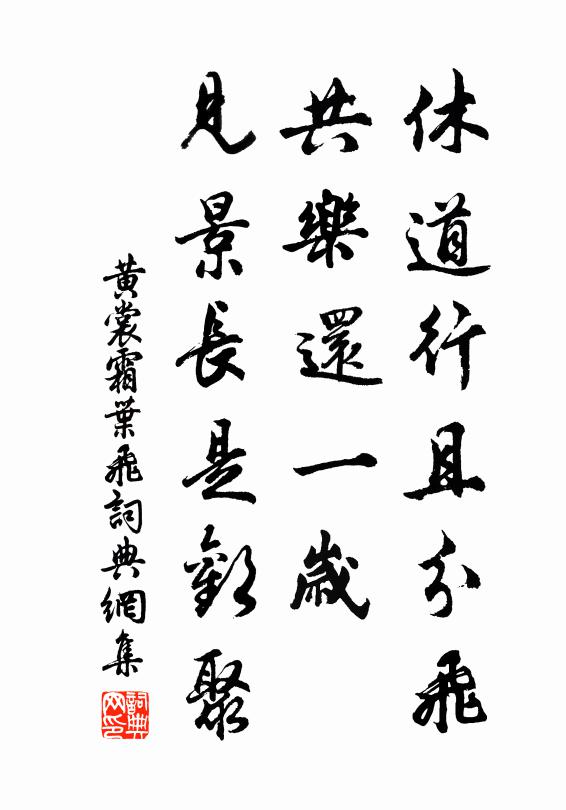 休道行且分飛
共樂還一歲
見景長是歡聚
黃裳霜葉飛詞典網集
詞典
网印